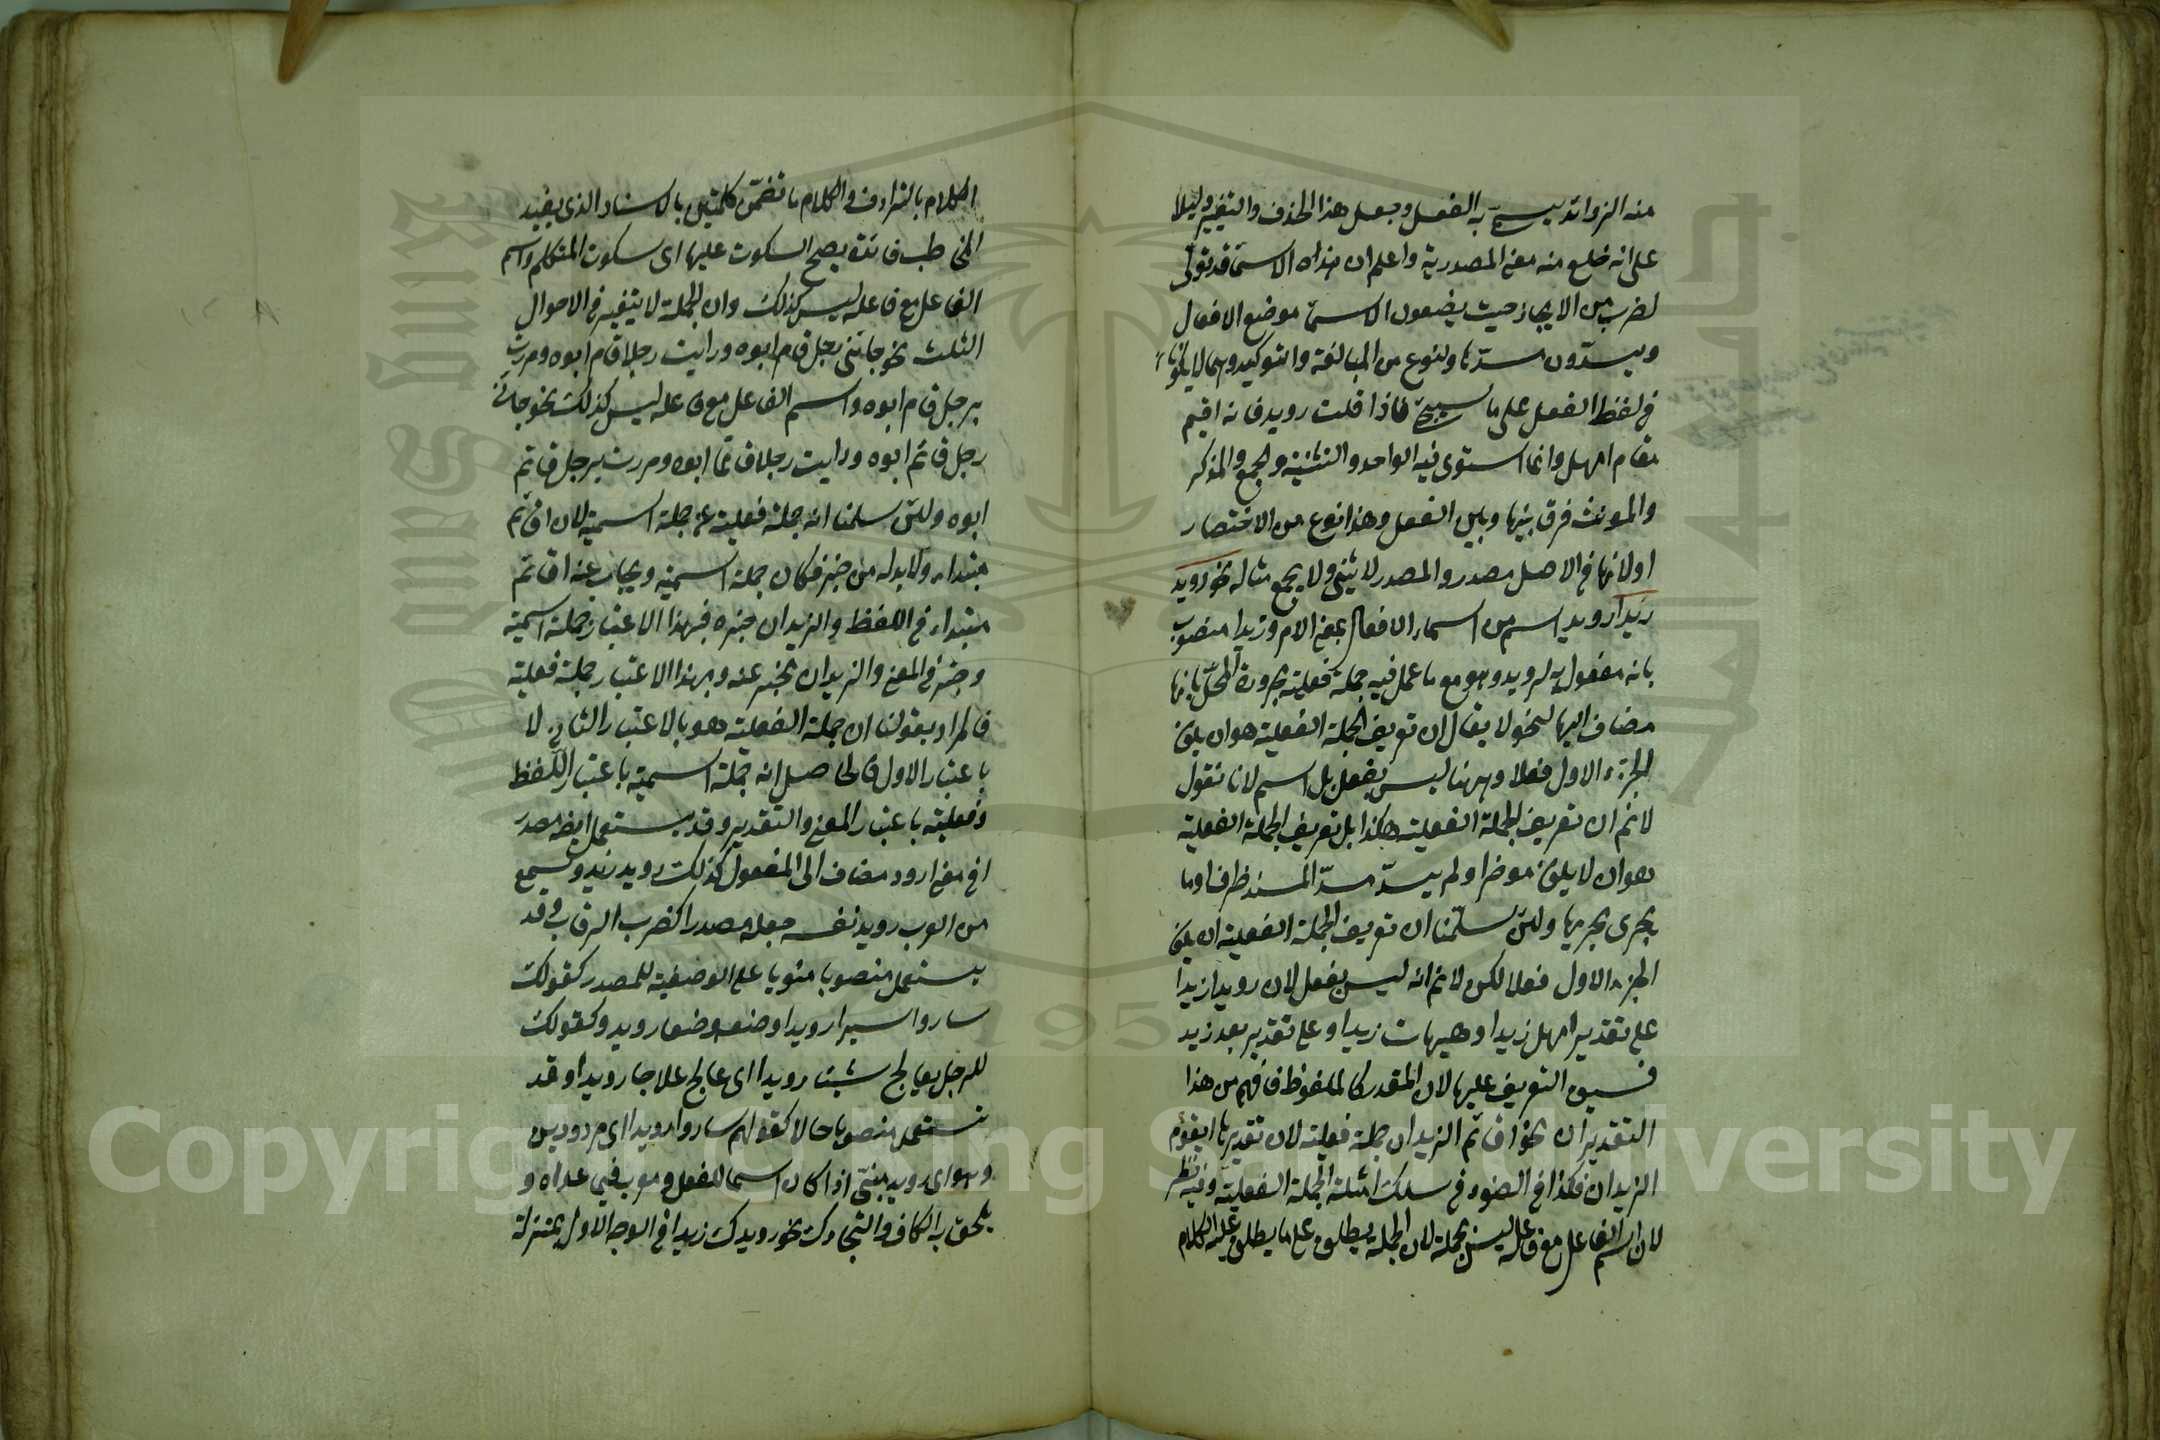 منه الزوائد يسمى به الفعل وجعل هذا الحذف والتغيير دليلا
على انه خلع منه معنى المصدرية واعلم ان هذه الاسماء قد تولى
لضرب من الايجاز حيث يضعون الاسماء موضع الافعال
ويسدون مسدها ولنوع من المبالغة والتوكيد وهما لا يكونان
في لفظ الفعل على ما سيجئ فاذا قلت رويد فانه اقيم
مقام امهل وانما استوى فيه الواحد والتثنية والجمع والمذكر
والمونث فرق بينها وبين الفعل وهذا نوع من الاختصار
او لانها في الاصل مصدر والمصدر لا يثنى ولا يجمع مثاله نحو رويد
زيدا رويد اسم من اسماء الافعال بمعنى الامر وزيدا منصوب
بانه مفعول به لرويد وهو مع ما عمل فيه جملة فعلية مجرورة المحل بانها
مضاف اليها لنحو لا يقال ان تعريف الجملة الفعلية هو ان يكون
الجزء الاول فعلا وههنا ليس بفعل بل اسم لانا نقول
لا نم ان تعريف الجملة الفعلية هكذا بل تعريف الجملة الفعلية
هو ان لا يكون موخرا ولم يسد مسد المسند ظرف او ما
يجرى مجريها ولئن سلمنا ان تعريف الجملة الفعلية ان يكون
الجزء الاول فعلا لكن لا نم انه ليس بفعل لان رويدا زيدا
على تقدير امهل زيدا وهيهات زيدا وعلى تقدير بعد زيد
فسيق التعريف عليها لان المقدر كالملفوظ فافهم من هذا
التقدير ان نحو اقائم الزيدان جملة فعلية لان تقديرها ايقوم
الزيدان فكذا في الضوء في سلك امثلة الجملة الفعلية وفيه نظر
لان اسم الفاعل مع فاعله ليس بجملة لان الجملة يطلق على ما يطلق عليه الكلام
الكلام بالترادف والكلام ما تضمن كلمتين بالاسناد الذى يفيد
المخاطب فائدة يصح السكوت عليها اى سكوت المتكلم واسم
الفاعل مع فاعله ليس كذلك وان الجملة لا يتغير في الاحوال
الثلث نحو جائنى رجل قام ابوه ورايت رجلا قام ابوه ومررت
برجل قام ابوه واسم الفاعل مع فاعله ليس كذلك نحو جائنى
رجل قائم ابوه ورايت رجلا قائما ابوه ومررت برجل قائم
ابوه ولئن سلمنا انه جملة فعلية جملة اسمية لان اقائم
مبتداء ولا بد له من خبر فكان جملة اسمية ويجاب عنه اقائم
مبتداء في اللفظ والزيدان خبره فبهذا الاعتبار جملة اسمية
وخبر في المعنى والزيدان مخبر عنه وبهذا الاعتبار جملة فعلية
فالمراد بقولنا ان جملة الفعلية هو بالاعتبار الثانى لا
باعتبار الاول فالحاصل انه جملة اسمية باعتبار اللفظ
وفعلية باعتبار المعنى والتقدير وقد يستعمل ايضا مصدر
في معنى ارود مضاف الى المفعول كذلك رويد زيد ويسمع
من العرب رويد نفسه جعله مصدرا كضرب الرقاب وقد
يستعمل منصوبا منويا على الوصفية للمصدر كقولك
ساروا سيرا رويدا وضعه وضعا رويد وكقولك
للرجل يعالج شيئا رويدا اى عالج علاجا رويدا وقد
تستعمل منصوبا حالا كقولهم ساروا رويدا اى مرودين
وهو اى رويد مبنى اذا كان اسما للفعل ومعرب فى عداه و
يلحق به الكاف نحو رويدك زيدا في الوجه الاول بمنزلة
Copyright © King Saud University
1957